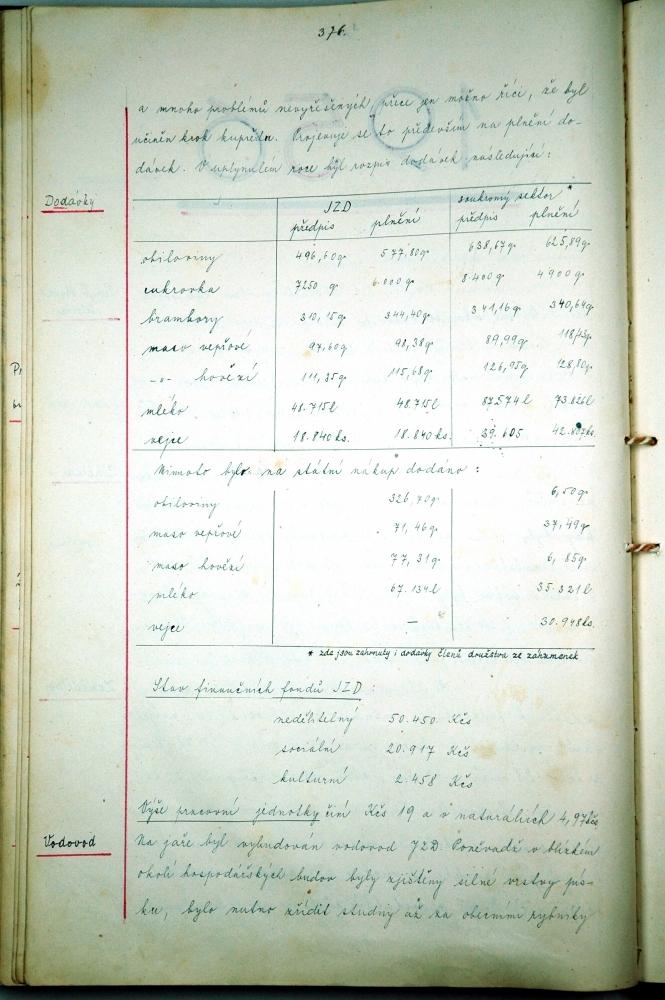 376.
a mnoho problémů nevyřešených, přece jen možno říci, že byl
učiněn krok kupředu. Projevuje se to především na plnění do-
dávek. V uplynulém roce byl rozpis dodávek následující:
Dodávky
JZD soukromý sektor *
předpis plnění předpis plnění
obiloviny 496,60q 577,80q 638,67q 625,89q
cukrovka 7250 q 6.000q 8.400q 4900q
brambory 310,15q 344,40q 341,16q 340,64q
maso vepřové 97,60q 98,38q 89,99q
-"- hovězí 111,35q 115,68q 126,95q 128,80q
mléko 48.715l 48.715l 87.574l 73.826l
vejce 18.840ks. 18.840ks. 39.605
Mimoto bylo na státní nákup dodáno:
obiloviny 326,70q 6,50q
maso vepřové 71,46q 37,49q
maso hovězí 77,31q 6,85q
mléko 67.134l 35.321l
vejce — 30.948ks.
* zde jsou zahrnuty i dodávky členů družstva ze záhumenek
Stav finančních fondů JZD:
nedělitelný 50.450 Kčs
sociální 20.917 Kčs
kulturní 2.458 Kčs
Výše pracovní jednotky činí Kčs 19 a v naturáliích 4,97Kčs
Vodovod
Na jaře byl vybudován vodovod JZD. Poněvadž v blízkém
okolí hospodářských budov byly zjištěny silné vrstvy pís-
ku, bylo nutno zřídit studny až za obecními rybníky